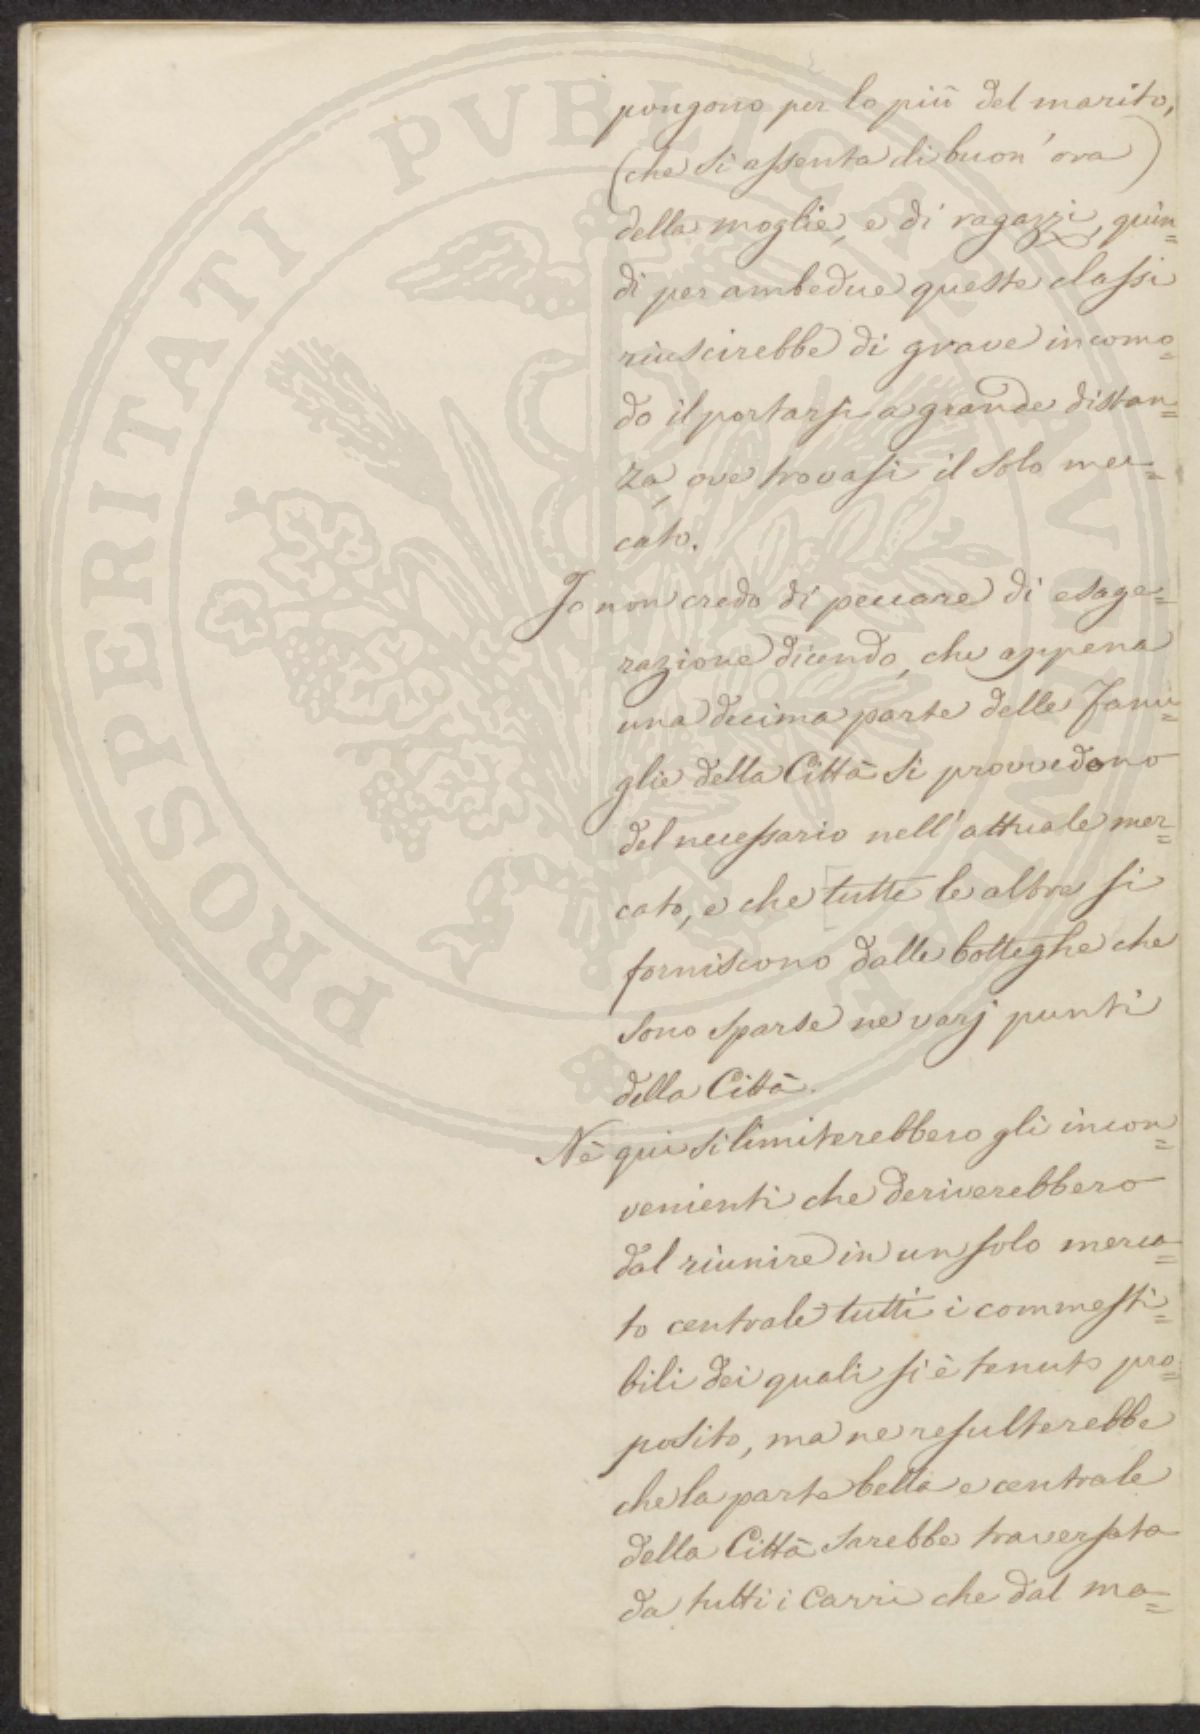 pongono per lo più del marito,
(che si assenta di buon'ora)
della moglie, e di ragazzi, quin=
di per ambedue queste classi
riuscirebbe di grave incomo=
do il portarsi a grande distan=
za, ove trovasi il solo mer=
cato.
Io non credo di peccare di esage=
razione dicendo, che appena
una decima parte delle Fami=
glie della Città si provvedono
del necessario nell'attuale mer=
cato, e che tutte le altre si
forniscono dalle botteghe che
sono sparse ne varj punti
della Città.
Nè qui si limiterebbero gli incon=
venienti che deriverebbero
dal riunire in un solo merca=
to centrale tutti i commesti=
bili dei quali si è tenuto pro=
posito, ma ne resulterebbe
che la parte bella e centrale
della Città sarebbe traversata
da tutti i Carri che dal ma=
PROSPERITATI PVBLICAE AVGENDAE